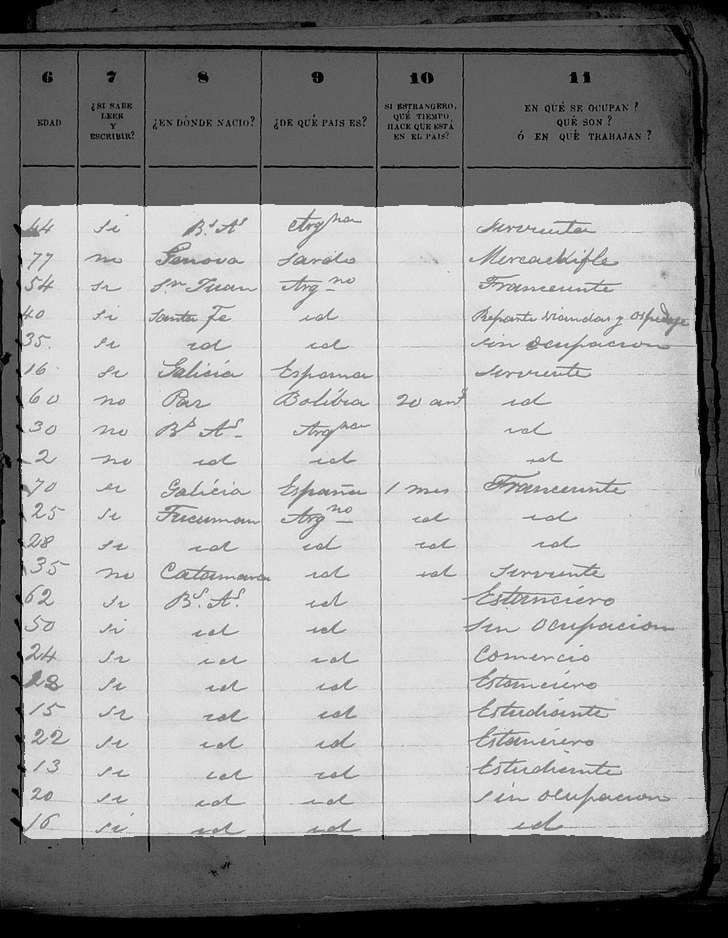 6 7 8 9 10 11
EDAD ¿SI SABE LEER Y ESCRIBIR? ¿EN DÓNDE NACIO? ¿DE QUÉ PAIS ES? SI ESTRANGERO, QUÉ TIEMPO HACE QUE ESTÁ EN EL PAIS? EN QUÉ SE OCUPAN? QUÉ SON? Ó EN QUÉ TRABAJAN?
44 si Bs As Argna sirvienta
77 no Genova Sardo Mercachifle
54 si Sn Juan Argno Tranceunte
40 si Santa Fe id Reparte viandas y
35 si id id sin ocupacion
16 si Galicia Espana sirviente
60 no Paz Bolibia 20 ans id
30 no Bs As Argna id
2 no id id id
70 si Galicia España 1 mes Tranceunte
25 si Tucuman Argno id id
28 si id id id id
35 no Catamarca id id sirviente
62 si Bs As id Estanciero
50 si id id sin ocupacion
24 si id id Comercio
28 si id id Estanciero
15 si id id Estudiante
22 si id id Estanciero
13 si id id Estudiante
20 si id id sin ocupacion
16 si id id id